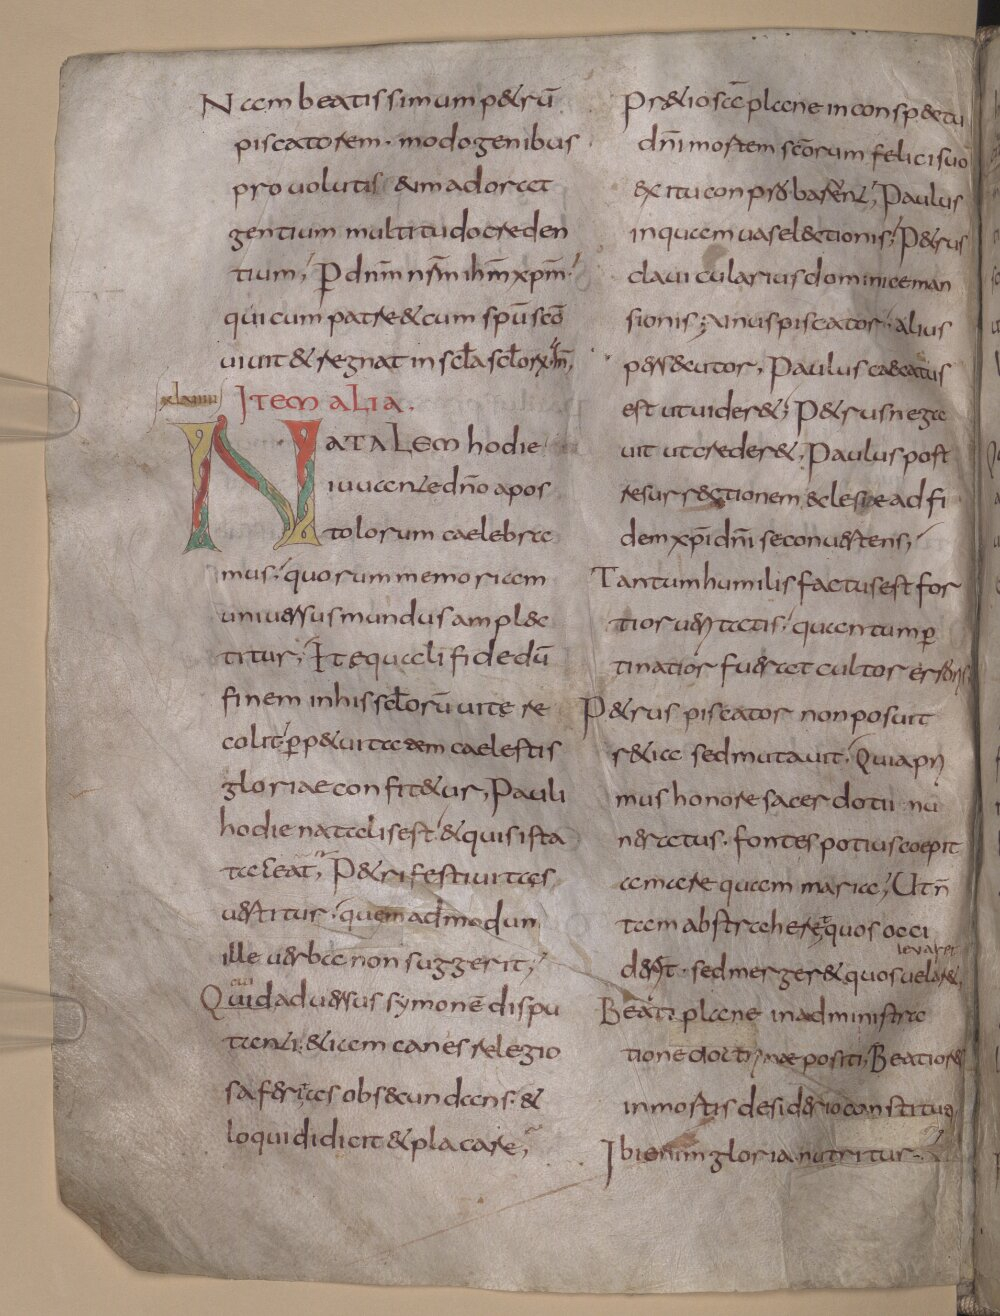 Nam beatissimum p&rū
piscatorem · modo genibus
prouolutis &iam adorat
gentium multitudo creden
tium; P dn̄m nr̄m ihm̄ xpm̄·
qui cum patre & cum spū scō
uiuit & regnat in scła scłorum
xlaiiii
Item alia.
Natalem hodie
iuuante dn̄o apos
tolorum caelebra
mus; quorum memoriam
uniuersus mundus amplec
titur; Ite quali fidedū
finem in his scłorū uite re
colit p̱p&uitatem caelestis
gloriae confit&ur, Pauli
hodie natalis est · & quis ista
taceat; P&ri festiuitas
uertitur · quemadmodum
ille uerba non suggerit;
cui
Quid aduersus symonē dispu
tanti · & iam canes relegio
sa feritas obsecundans · &
loqui didicit & placare;
Pr&iosa plane in conspectu
dn̄i mors tem scōrum felici suo
exitu conprobarent; Paulus
inquam uas electionis; P&rus
clauicularius dominice man
sionis; Unus piscator · alius
persecutor, Paulus caecatus
est ut uider&; P&rus nega
uit ut creder&, Paulus post
resurrectionem eclesiae ad fi
dem xp̄i dn̄i se conuertens;
Tantum humilis factus est for
tior ueritatis; quantum p̱
tinatior fuerat cultor erroris
P&rus piscator non posuit
r&ia sed mutauit. Quia pri
mus honore sacerdotii nu
neratus · fontes potius coepit
amare quam maria; Ut n̄
tam abstraheret quos occi
leuaret
der&· sed merger& quos uelar&,
Beati plane in administra
tione doctrinae positi, Beatiores
in mortis desiderio constituti
Ibi enim gloria nutritur·